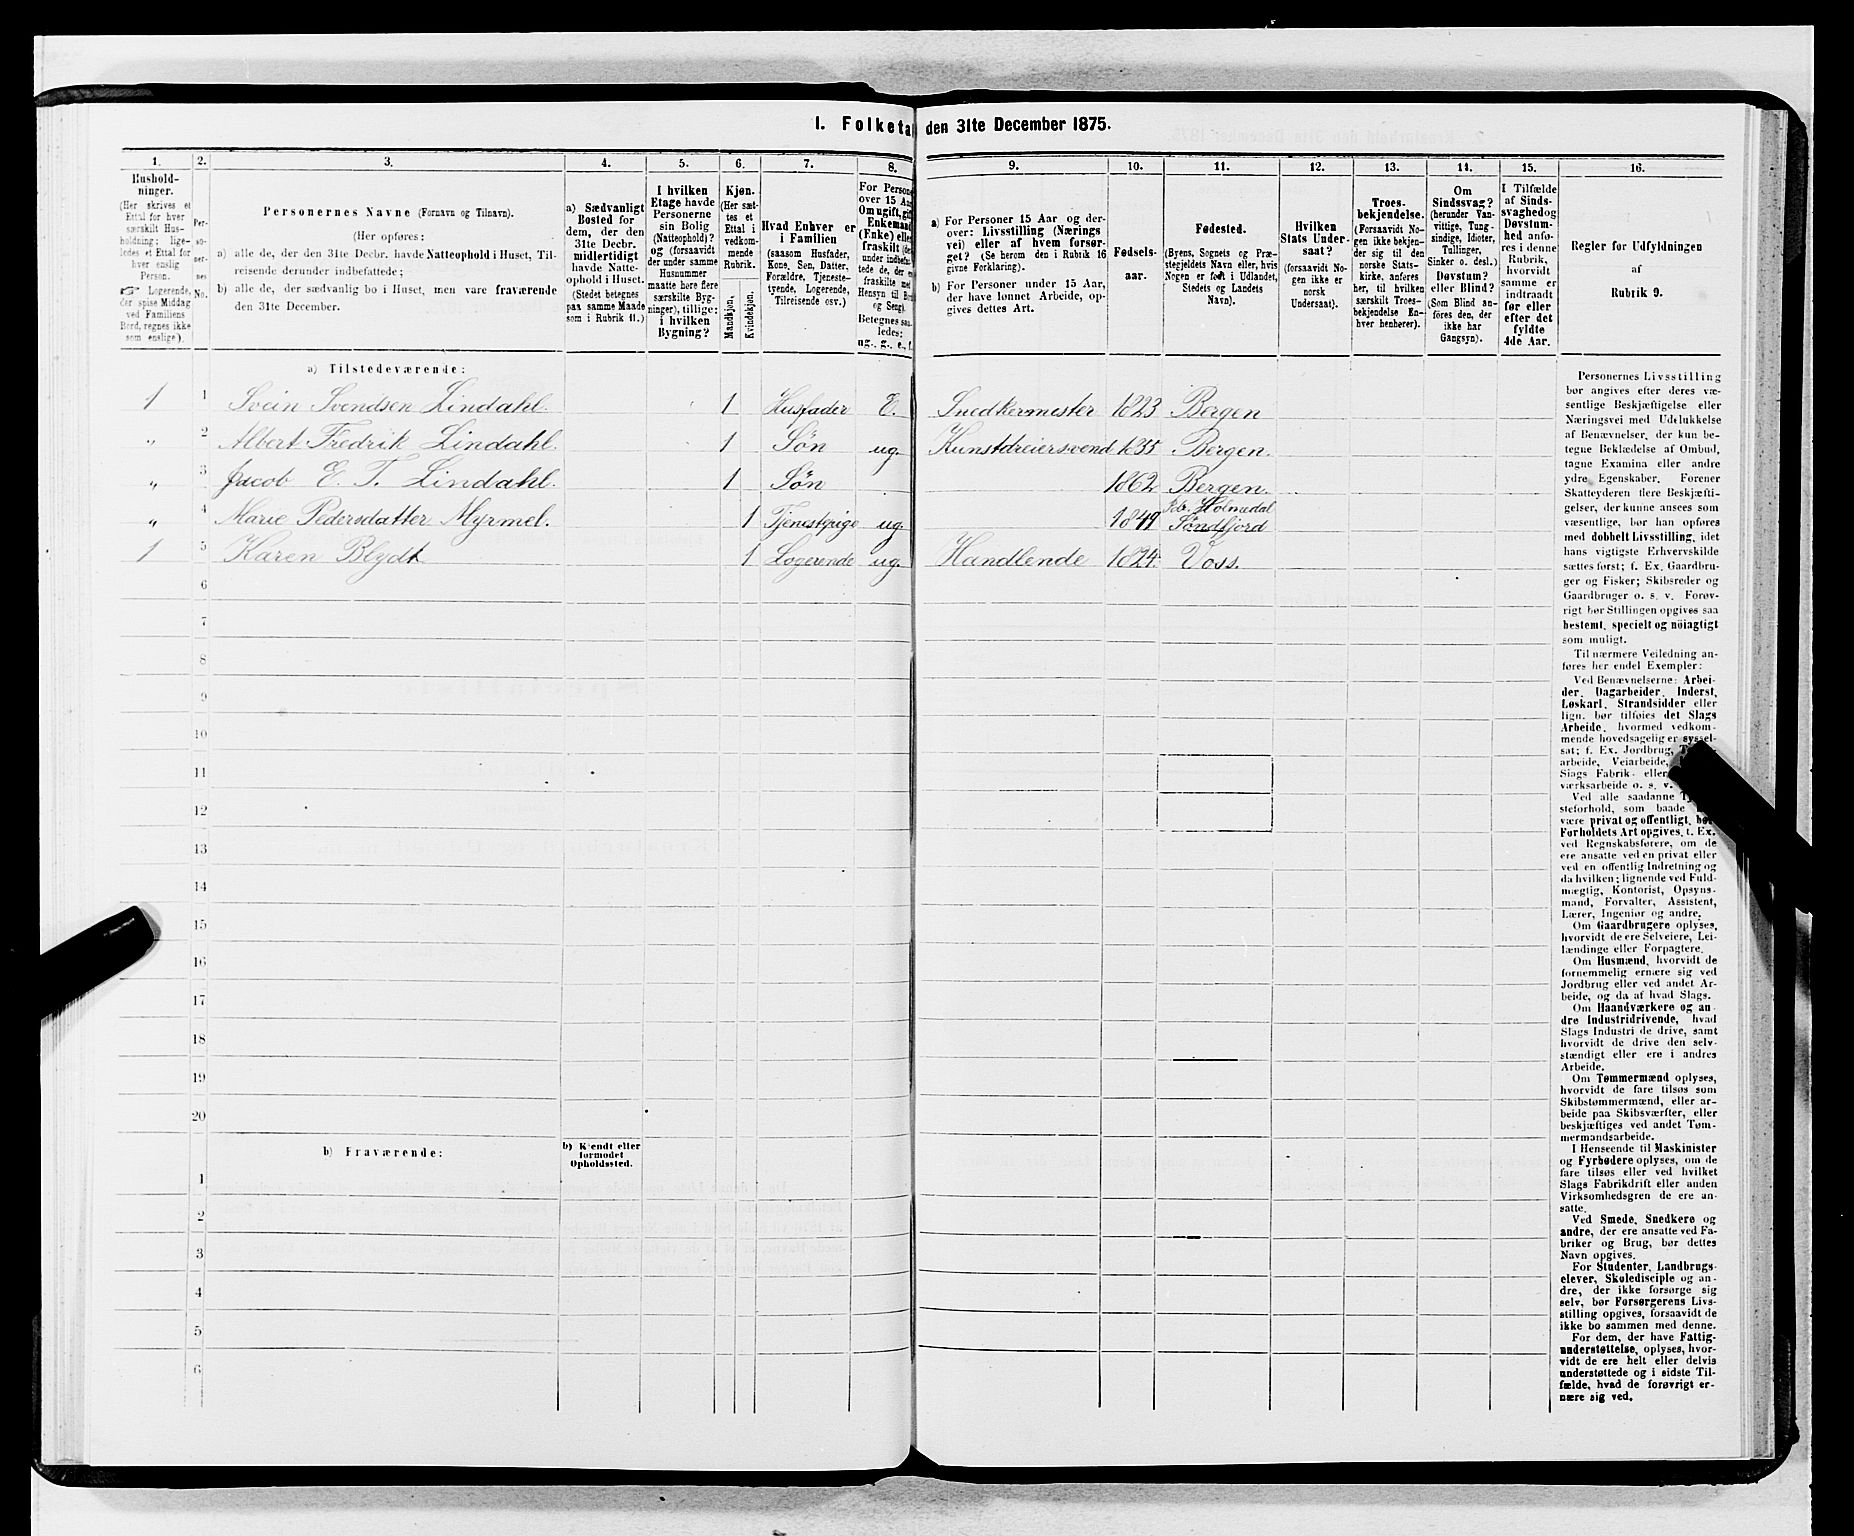 I. Folketa den 31te December 1875.
1. 2. 3. 4. 5. 6. 7. 8. 9. 10. 11. 12. 13. 14. 15. 16.
Hushold-
ninger.
(Her skrives et
Ettal for hver
særskilt Hus-
holdning; lige-
ledes et Ettal for
hver enslig
Person.
☞ Logerende,
der spise Middag
ved Familiens
Bord, regnes ikke
som enslige).
Per-
so-
ner-
nes
No.
Personernes Navne (Fornavn og Tilnavn).
(Her opføres:
a) alle de, der den 31te Decbr. havde Natteophold i Huset, Til-
reisende derunder indbefattede;
b) alle de, der sædvanlig bo i Huset, men vare fraværende
den 31te December.
a) Sædvanligt
Bosted for
dem, der den
31te Decbr.
midlertidigt
havde Natte-
ophold i Huset.
(Stedet betegnes
paa samme Maade
som i Rubrik 11.)
I hvilken
Etage havde
Personerne
sin Bolig
(Natteophold)?
og (forsaavidt
der under samme
Husnummer
maatte høre flere
særskilte Byg-
ninger), tillige:
i hvilken
Bygning?
Kjøn.
(Her sæt-
tes et
Ettal i
vedkom-
mende
Rubrik.
Mandkjøn.
Kvindekjøn.
Hvad Enhver er
i Familien
(saasom Husfader,
Kone, Søn, Datter,
Forældre, Tjeneste-
tyende, Logerende,
Tilreisende osv.)
For Persone
over 15 Aa
Om ugift, gif
Enkemand
(Enke) elle
fraskilt (de
under indbefat
tede de, der e
fraskilte med
Hensyn til Bo
og Seng).
Betegnes saa
ledes:
ug., g., e., f.
a) For Personer 15 Aar og der-
over: Livsstilling (Nærings
vei) eller af hvem forsør-
get? (Se herom den i Rubrik 16
givne Forklaring).
b) For Personer under 15 Aar,
der have lønnet Arbeide, op-
gives dettes Art.
Fødsels-
aar.
Fødested.
(Byens, Sognets og Præ-
stegjeldets Navn eller, hvis
Nogen er født i Udlandet,
Stedets og Landets
Navn).
Hvilken
Stats Under-
saat?
(forsaavidt No-
gen ikke er
norsk
Undersaat).
Troes-
bekjendelse.
(Forsaavidt No-
gen ikke bekjen-
der sig til den
norske Stats-
kirke, anføres
her, til hvilken
særskilt Troes-
bekjendelse En-
hver henhører).
Om
Sindssvag?
(herunder Van-
vittige, Tung-
sindige, Idioter,
Tullinger,
Sinker o. desl.)
Døvstum?
eller Blind?
(Som Blind an-
føres den, der
ikke har
Gangsyn).
I Tilfælde
af Sinds-
svaghed og
Døvstum-
hed anfø-
res i denne
Rubrik,
hvorvidt
samme er
indtraadt
før eller
efter det
fyldte
4de Aar.
Regler for Udfyldningen
af
Rubrik 9.
a) Tilstedeværende:
1 1 Svein Svendsen Lindahl. 1 Husfader E. Snedkermester 1823 Bergen
" 2 Albert Fredrik Lindahl. 1 Søn ug. Kunstdreiersvend 1855 Bergen.
" 3 Jacob E. T. Lindahl. 1 Søn 1862 Bergen.
" 4 Marie Pedersdatter Myrmel. 1 Tjenestpige ug. 1849 Holmedal
Søndfjord
1 5 Karen Blydt 1 Logerende ug. Handlende 1824. Voss.
6
7
8
9
10
11
12
13
14
15
16
17
18
19
20
b) Fraværende:
b) Kjendt eller
formodet
Opholdssted.
1
2
3
4
5
6
Personernes Livsstilling
bør angives efter deres væ-
sentlige Beskjæftigelse eller
Næringsvei med Udelukkelse
af Benævnelser, der kun be-
tegne Beklædelse af Ombud,
tagne Examina eller andre
ydre Egenskaber. Forener
Skatteyderen flere Beskjæfti-
gelser, der kunne ansees som
væsentlige, bør han opføres
med dobbelt Livsstilling, idet
hans vigtigste Erhvervskilde
sættes først; f. Ex. Gaardbru-
ger og Fisker; Skibsreder og
Gaardbruger o. s. v. Forøv-
rigt bør Stillingen opgives saa
bestemt, specielt og nöiagtigt
som muligt.
Til nærmere Veiledning an-
føres her endel Exempler:
Ved Benævnelserne: Arbei-
der, Dagarbeider, Inderst,
Løskarl, Strandsidder eller
lign. bør tilføies det Slags
Arbeide, hvormed vedkom-
mende hovedsagelig er syssel-
sat; f. Ex. Jordbrug, T
arbeide, Veiarbeide,
Slags Fabrik- eller
værksarbeide o. s. v.
Ved alle saadanne Tj
steforhold, som baade
være privat og offentligt, bør
Forholdets Art opgives, t. Ex.
ved Regnskabsførere, om de
ere ansatte ved en privat eller
ved en offentlig Indretning og
da hvilken; lignende ved Fuld-
mægtig, Kontorist, Opsyns-
mand, Forvalter, Assistent,
Lærer, Ingeniør og andre.
Om Gaardbrugere oplyses,
hvorvidt de ere Selveiere, Lei-
lændinge eller Forpagtere.
Om Husmænd, hvorvidt de
fornemmelig ernære sig ved
Jordbrug eller ved andet Ar-
beide, og da af hvad Slags.
Om Haandværkere og an-
dre Industridrivende, hvad
Slags Industri de drive, samt
hvorvidt de drive den selv-
stændigt eller ere i andres
Arbeide.
Om Tømmermænd oplyses,
hvorvidt de fare tilsøs som
Skibstømmermænd, eller ar-
beide paa Skibsværfter, eller
beskjæftiges ved andet Tøm-
mermandsarbeide.
I Henseende til Maskinister
og Fyrbødere oplyses, om de
fare tilsøs eller ved hvilket
Slags Fabrikdrift eller anden
Virksomhedsgren de ere an-
satte.
Ved Smede, Snedkere og
andre, der ere ansatte ved Fa-
briker og Brug, bør dettes
Navn opgives.
For Studenter, Landbrugs-
elever, Skoledisciple og an-
dre, der ikke forsørge sig
selv, bør Forsørgerens Livs-
stilling opgives, forsaavidt de
ikke bo sammen med denne.
For dem, der have Fattig-
understøttelse, oplyses, hvor-
vidt de ere helt eller delvis
understøttede og i sidste Til-
fælde, hvad de forøvrigt er-
nære sig ved.